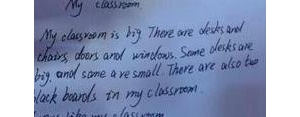 My classroom
My classroom is big. There are desks and
chairs, doors and windows. Some desks are
big, and some are small. There are also two
black boards in my classroom.
like my classroom